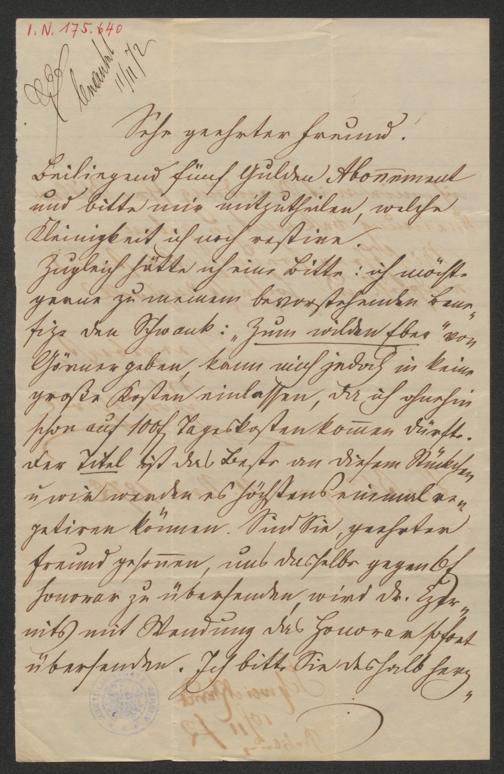 I. N. 175.640
11/11/72
Sehr geehrter Freund!
Beiliegend fünf Gulden Abonnement
und bitte mir mitzutheilen, welche
Kleinigkeit ich noch restire.
Zugleich hätte ich eine Bitte: ich möchte
gerne zu meinem bevorstehenden Bene-
fize den Schwank: „Zum wilden Eber" von
Görner geben, kann mich jedoch in keine
große Kosten einlassen, da ich ohnehin
schon auf 100f Tageskosten kommen dürfte.
Der Titel ist das Beste an diesem Stückchen
u wir werden es höchstens einmal re-
petiren können. Sind Sie, geehrter
Freund gesonnen, uns dasselbe gegen 6f
Honorar zu übersenden, wird Dr.
mit Wendung das Honorar sofort
übersenden. Ich bitte Sie deshalb herz-